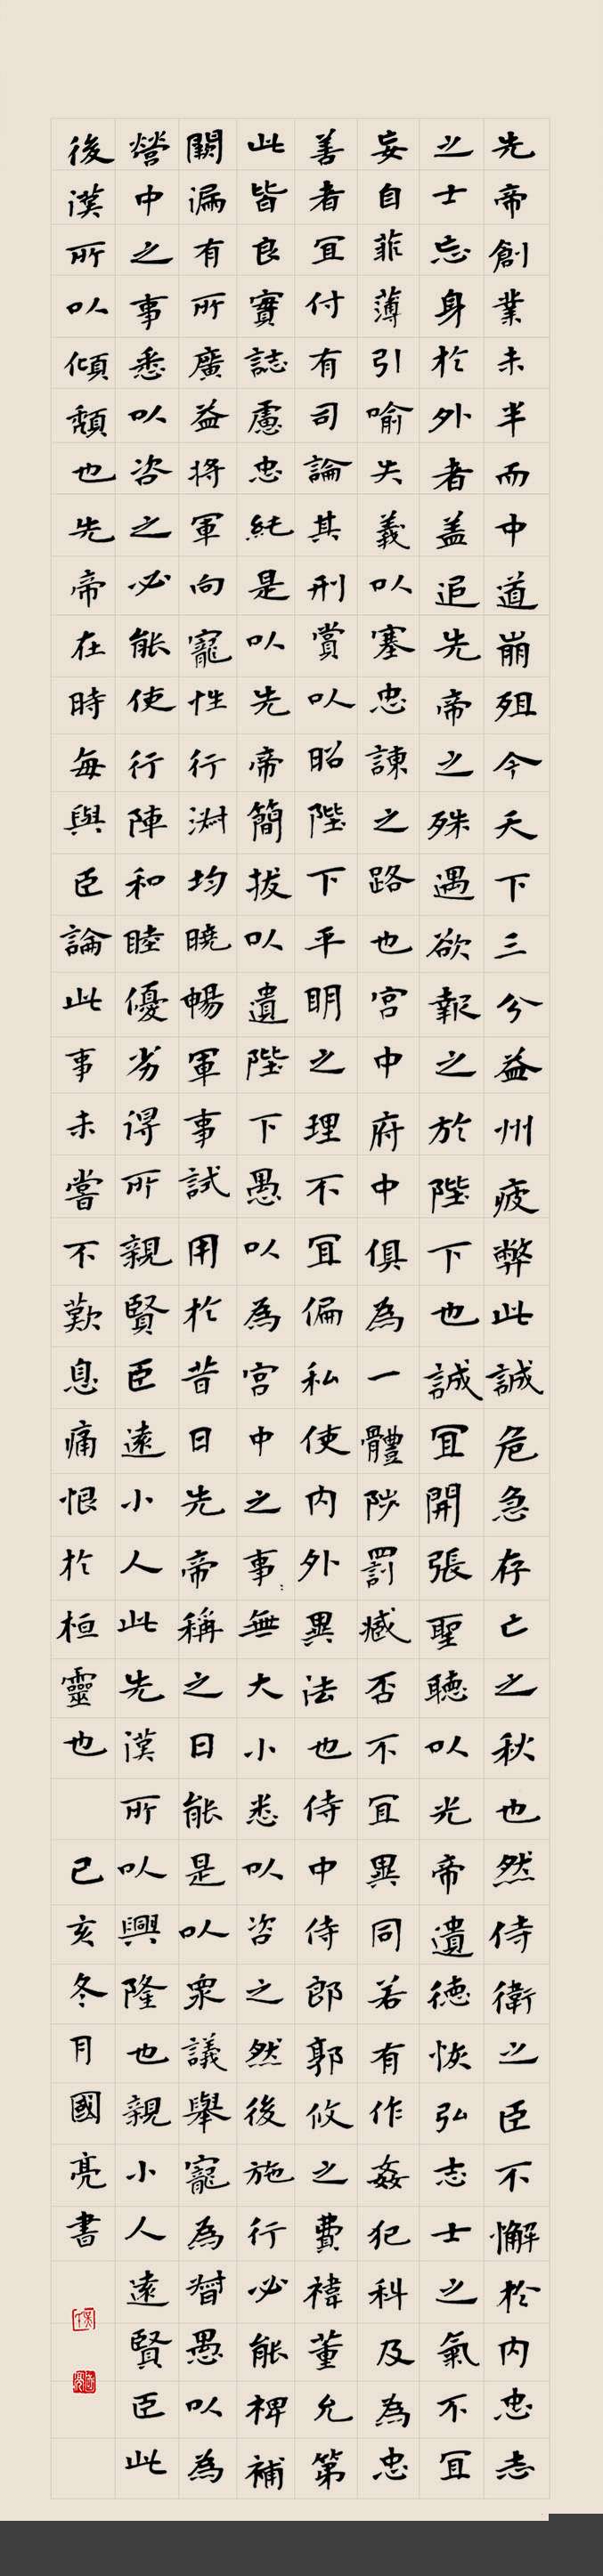 先帝創業未半而中道崩殂今天下三分益州疲弊此誠危急存亡之秋也然侍衛之臣不懈於内忠志
之士忘身於外者盖追先帝之殊遇欲報之於陛下也誠宜開張聖聽以光帝遺德恢弘志士之氣不宜
妄自菲薄引喻失義以塞忠諫之路也宮中府中俱為一體陟罰臧否不宜異同若有作姦犯科及為忠
善者宜付有司論其刑賞以昭陛下平明之理不宜偏私使内外異法也侍中侍郎郭攸之費禕董允第
此皆良實誌慮忠純是以先帝簡拔以遺陛下愚以為宮中之事無大小悉以咨之然後施行必能裨補
闕漏有所廣益將軍向寵性行淑均曉暢軍事試用於昔日先帝稱之日能是以衆議舉寵為督愚以為
營中之事悉以咨之必能使行陣和睦優劣得所親賢臣遠小人此先漢所以興隆也親小人遠賢臣此
後漢所以傾頹也先帝在時每與臣論此事未嘗不歎息痛恨於桓靈也 己亥冬月國亮書